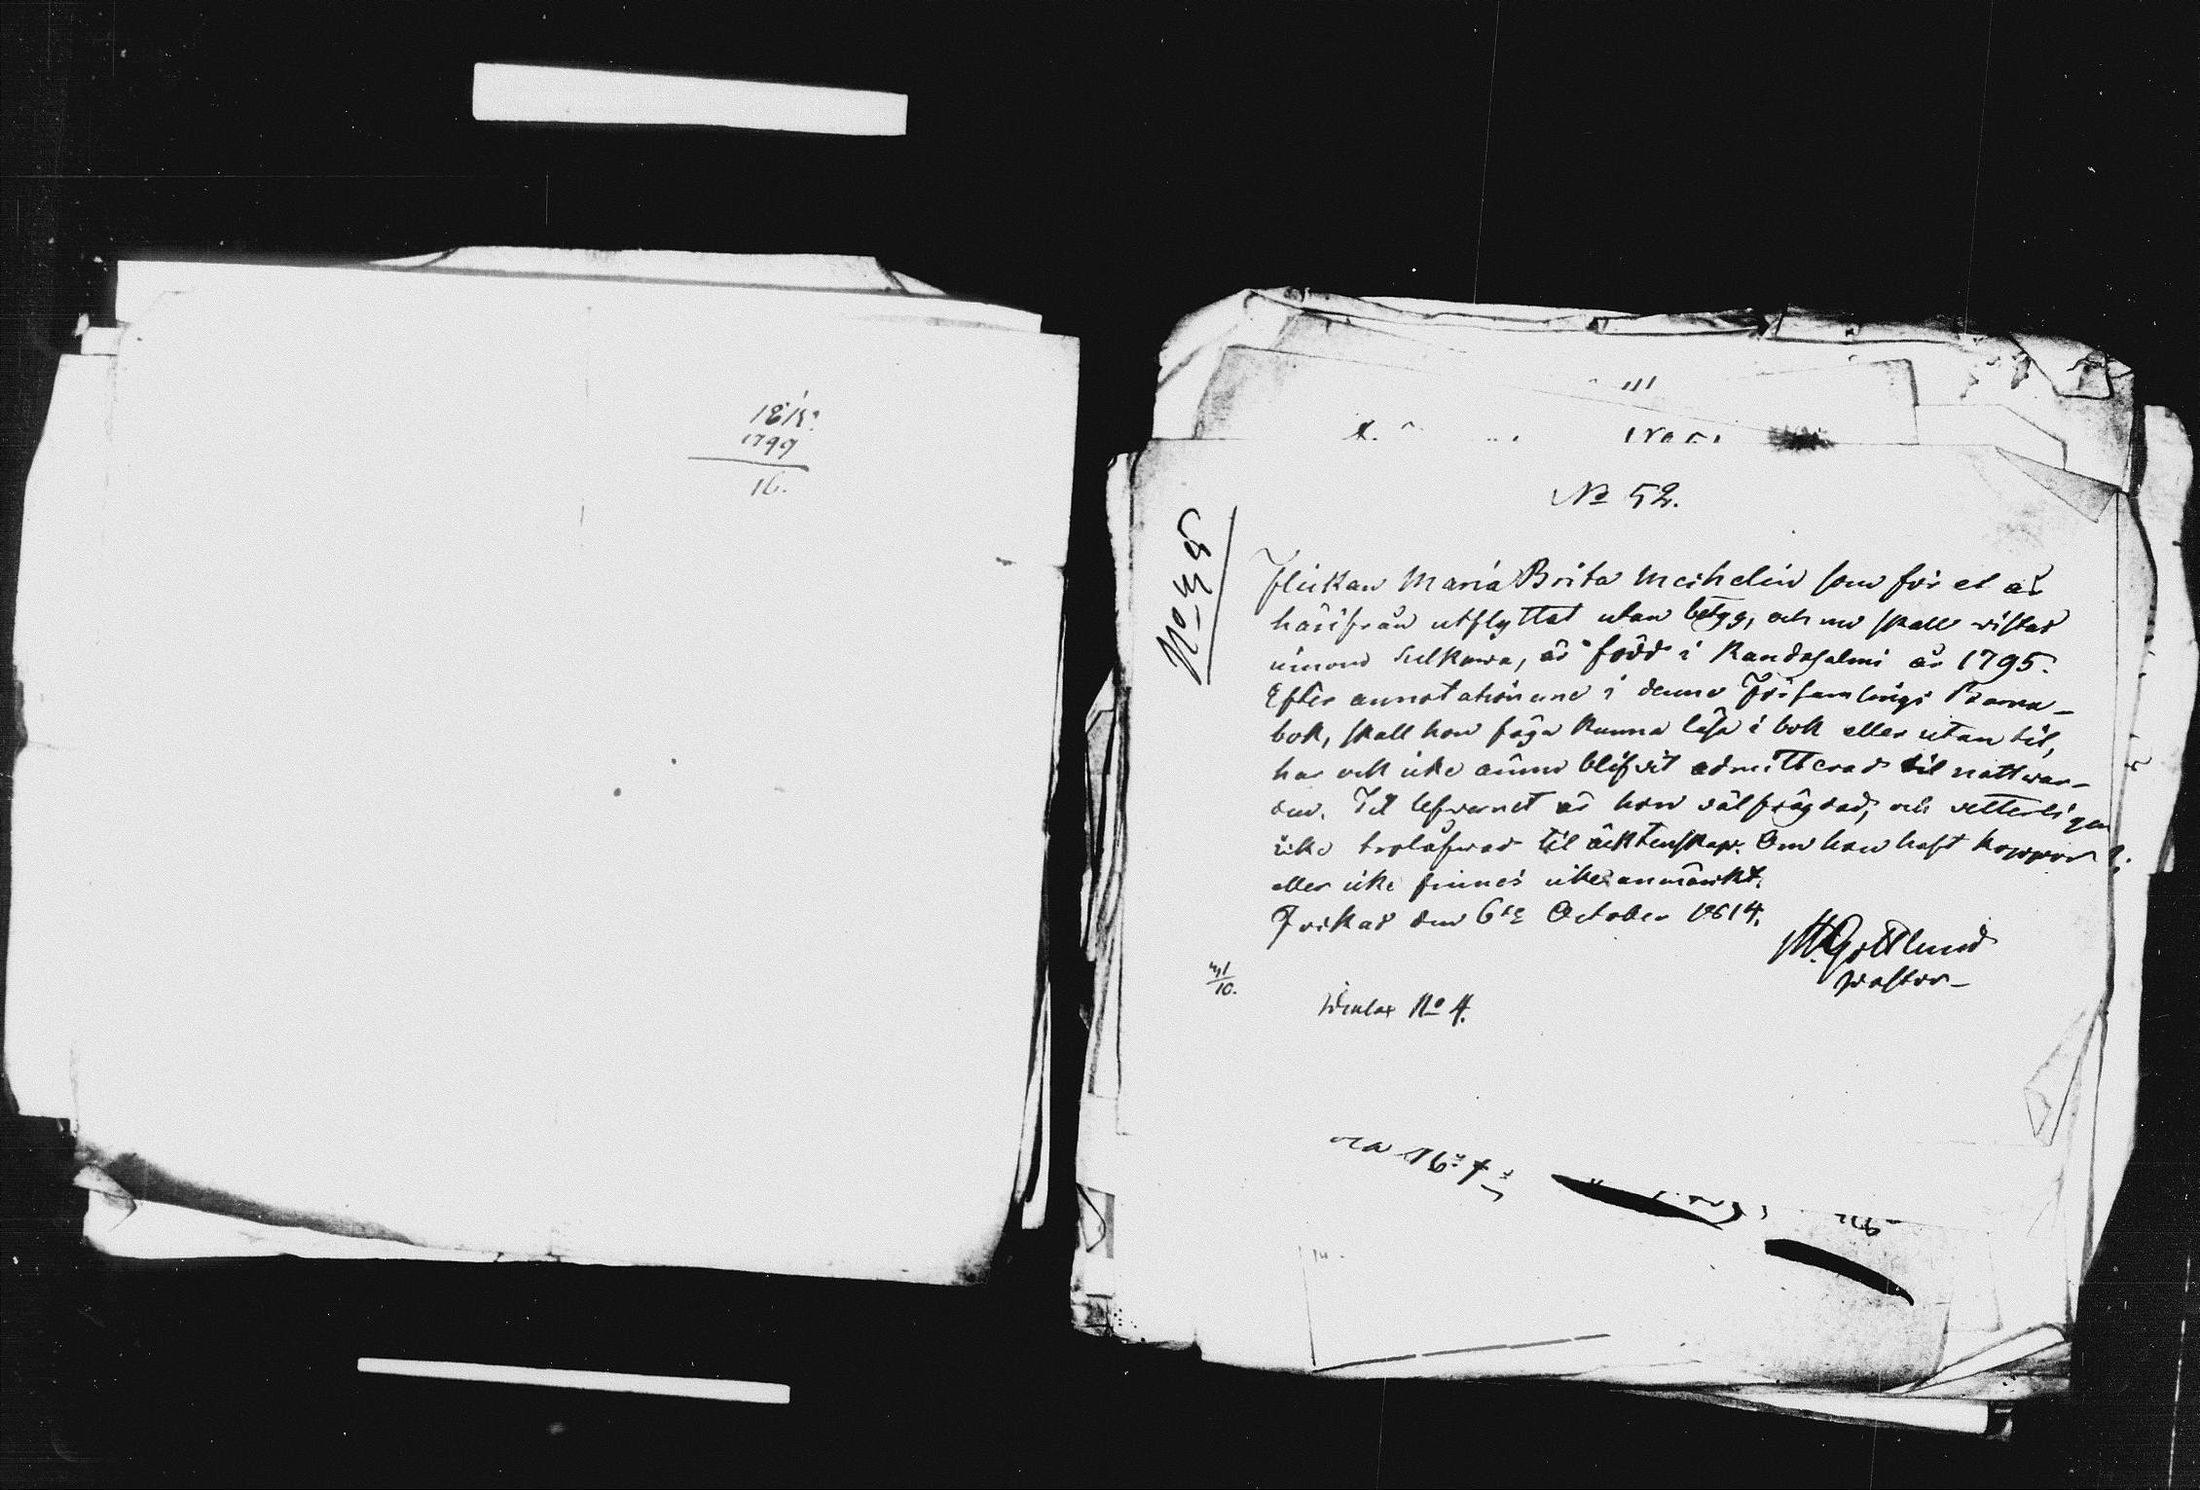 1815.
1799
16.
No 52.
Flickan Maria Brita Meihelin som för et år
härifrån utflyttat utan betyg, och nu skall vistas
inom Sulkawa, är född i Randasalmi år 1795.
Efter annotationerne i denne Församlings Barna-
bok, skall hon föga kunna läsa i bok eller utan til,
har och icke ännu blifvit admitterad til nattwar-
den. Til lefwernet är hon välfrägdad, och vetterligen
icke trolåfwad til äcktenskap. Om hon haft koppor
eller icke finnes icke anmärkt.
Jockas den 6te October 1814.
M. Gottlund
Pastor
10.
No 4.